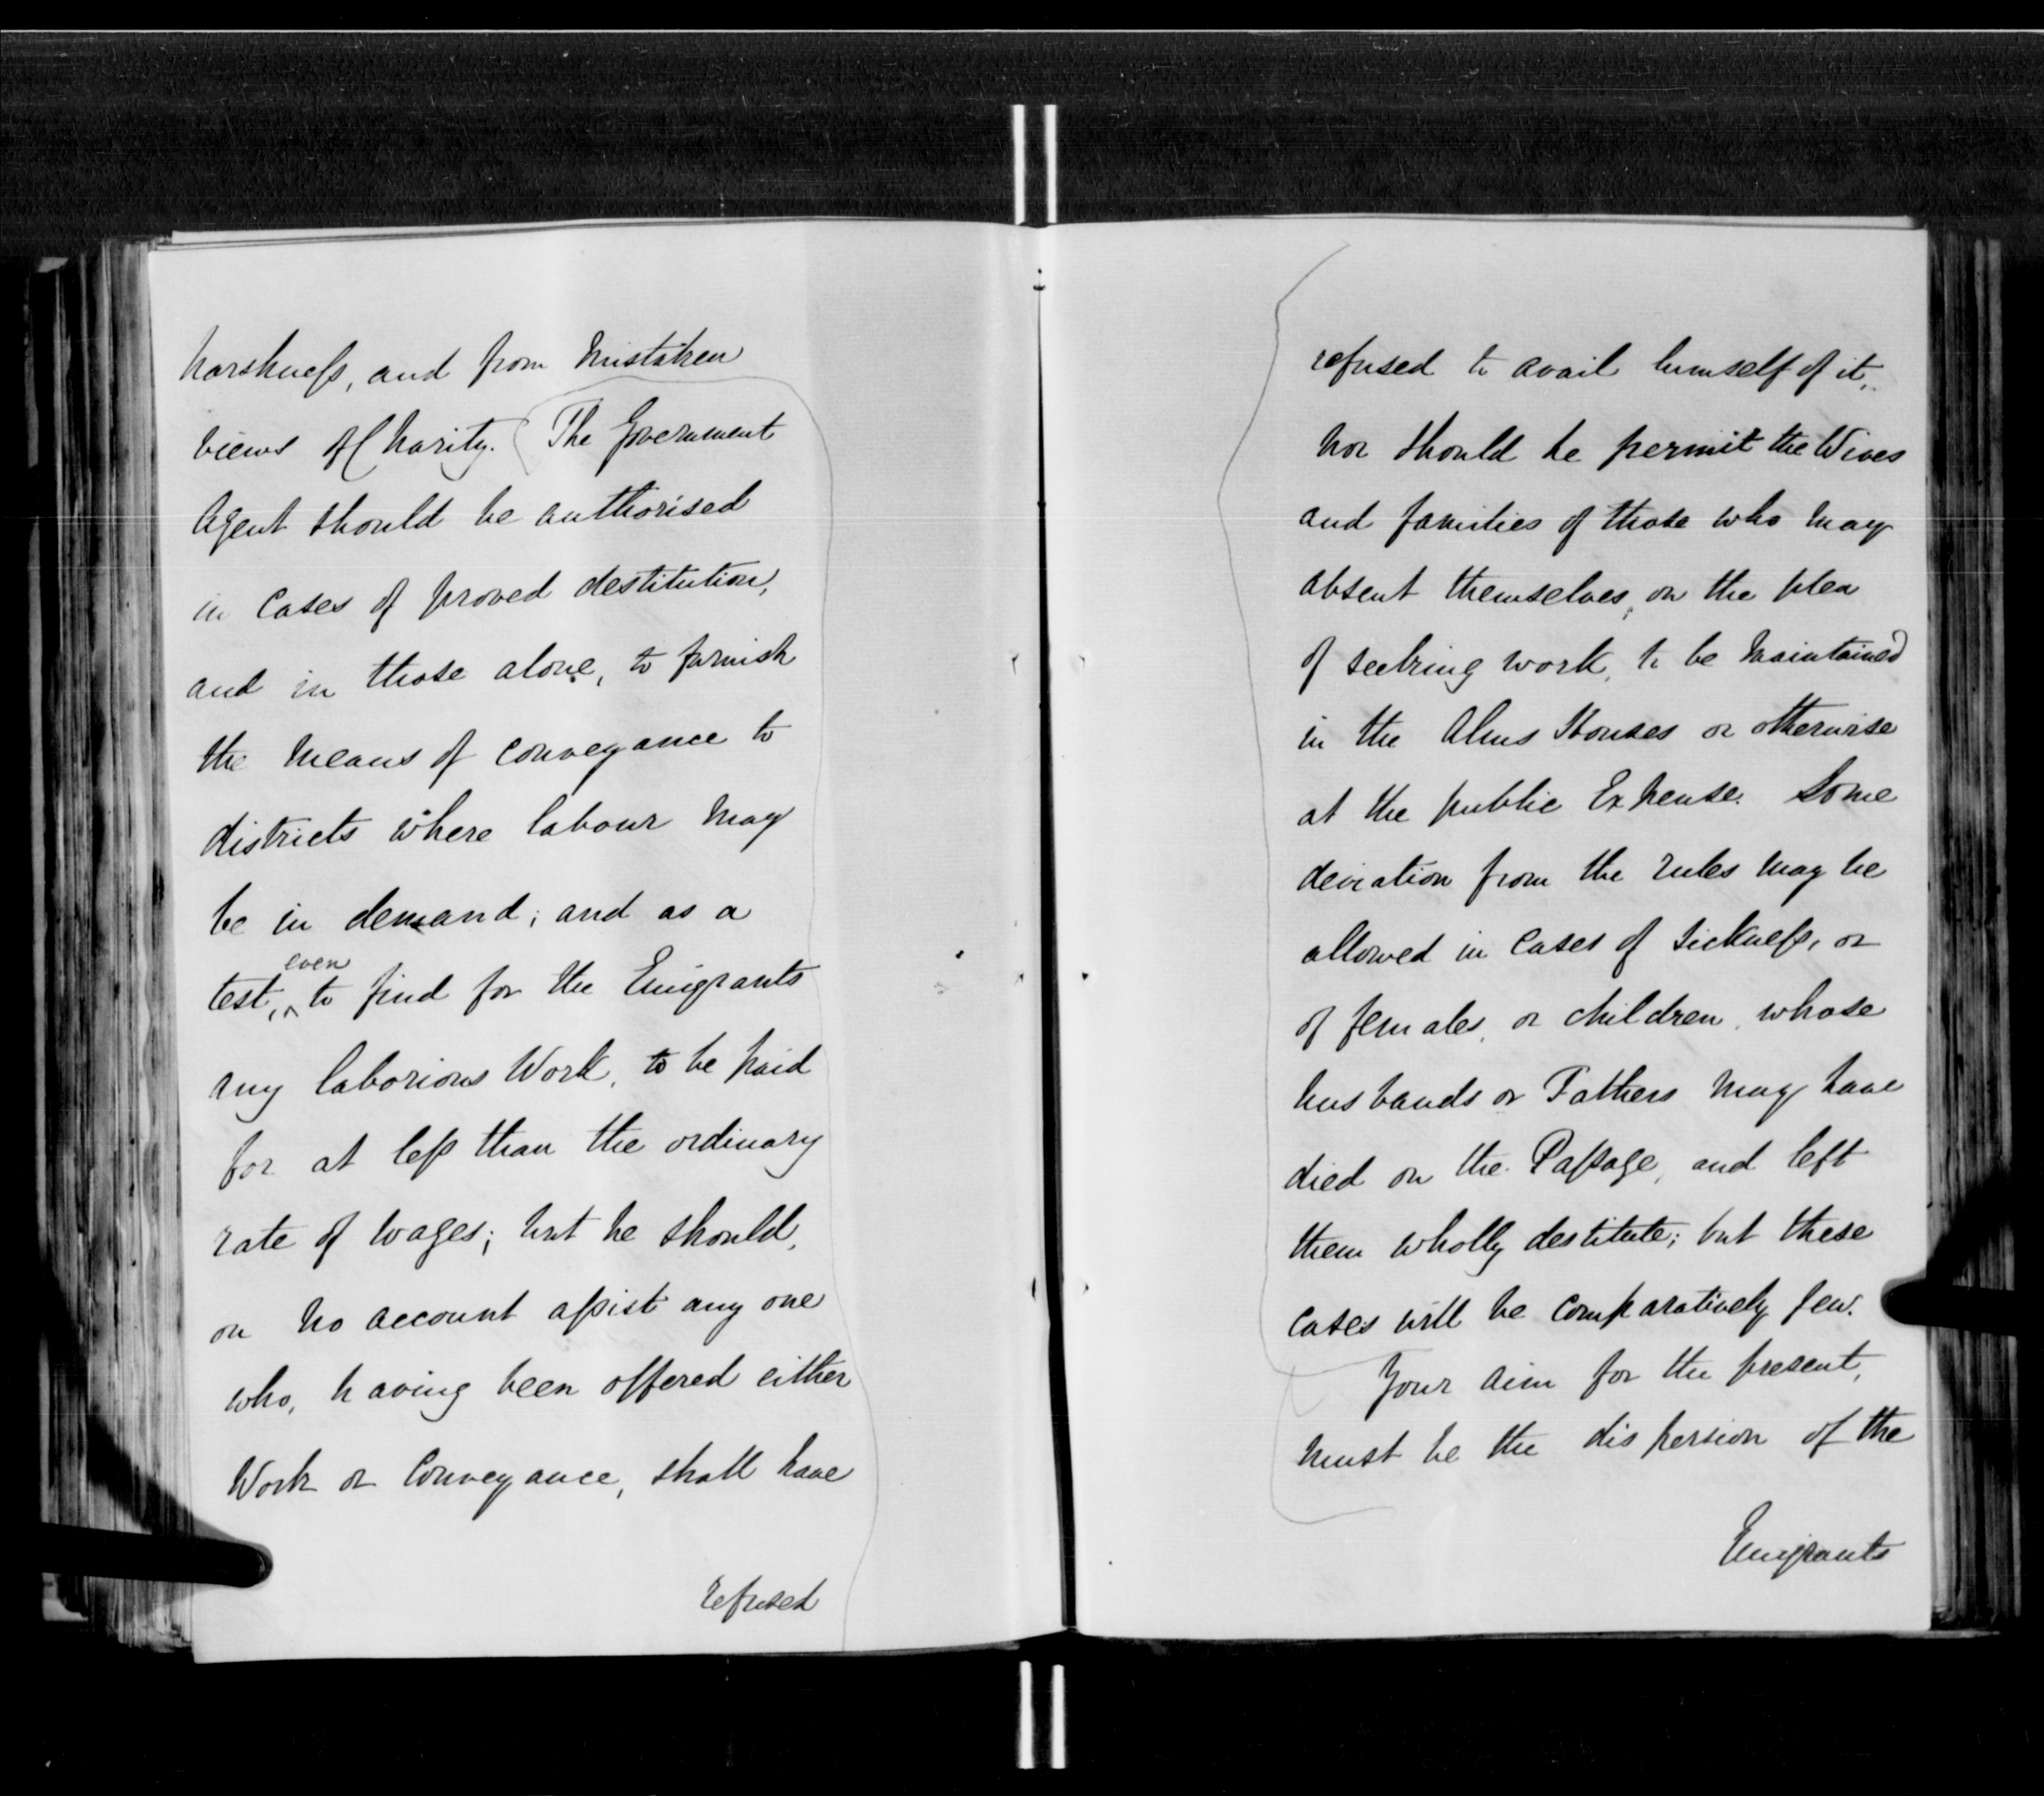 harshness, and from mistaken
views of Charity. (The Government
Agent should be authorised
in Cases of proved destitution,
and in those alone, to furnish
the means of conveyance to
districts where labour may
be in demand; and as a
even
test, ^ to find for the Emigrants
any laborious Work, to be paid
for at less than the ordinary
rate of wages; but he should,
on no account assist any one
who, having been offered either
Work or Conveyance, shall have
refused
refused to avail himself of it,
nor should he permit the Wives
and families of those who may
absent themselves, on the plea
of seeking work, to be maintained
in the Alms Houses or otherwise
at the public Expense. Some
deviation from the rules may be
allowed in Cases of sickness, or
of females, or children, whose
husbands or Fathers may have
died on the Passage, and left
them wholly destitute; but these
Cases will be comparatively few.
Your aim for the present,
must be the dispersion of the
Emigrants